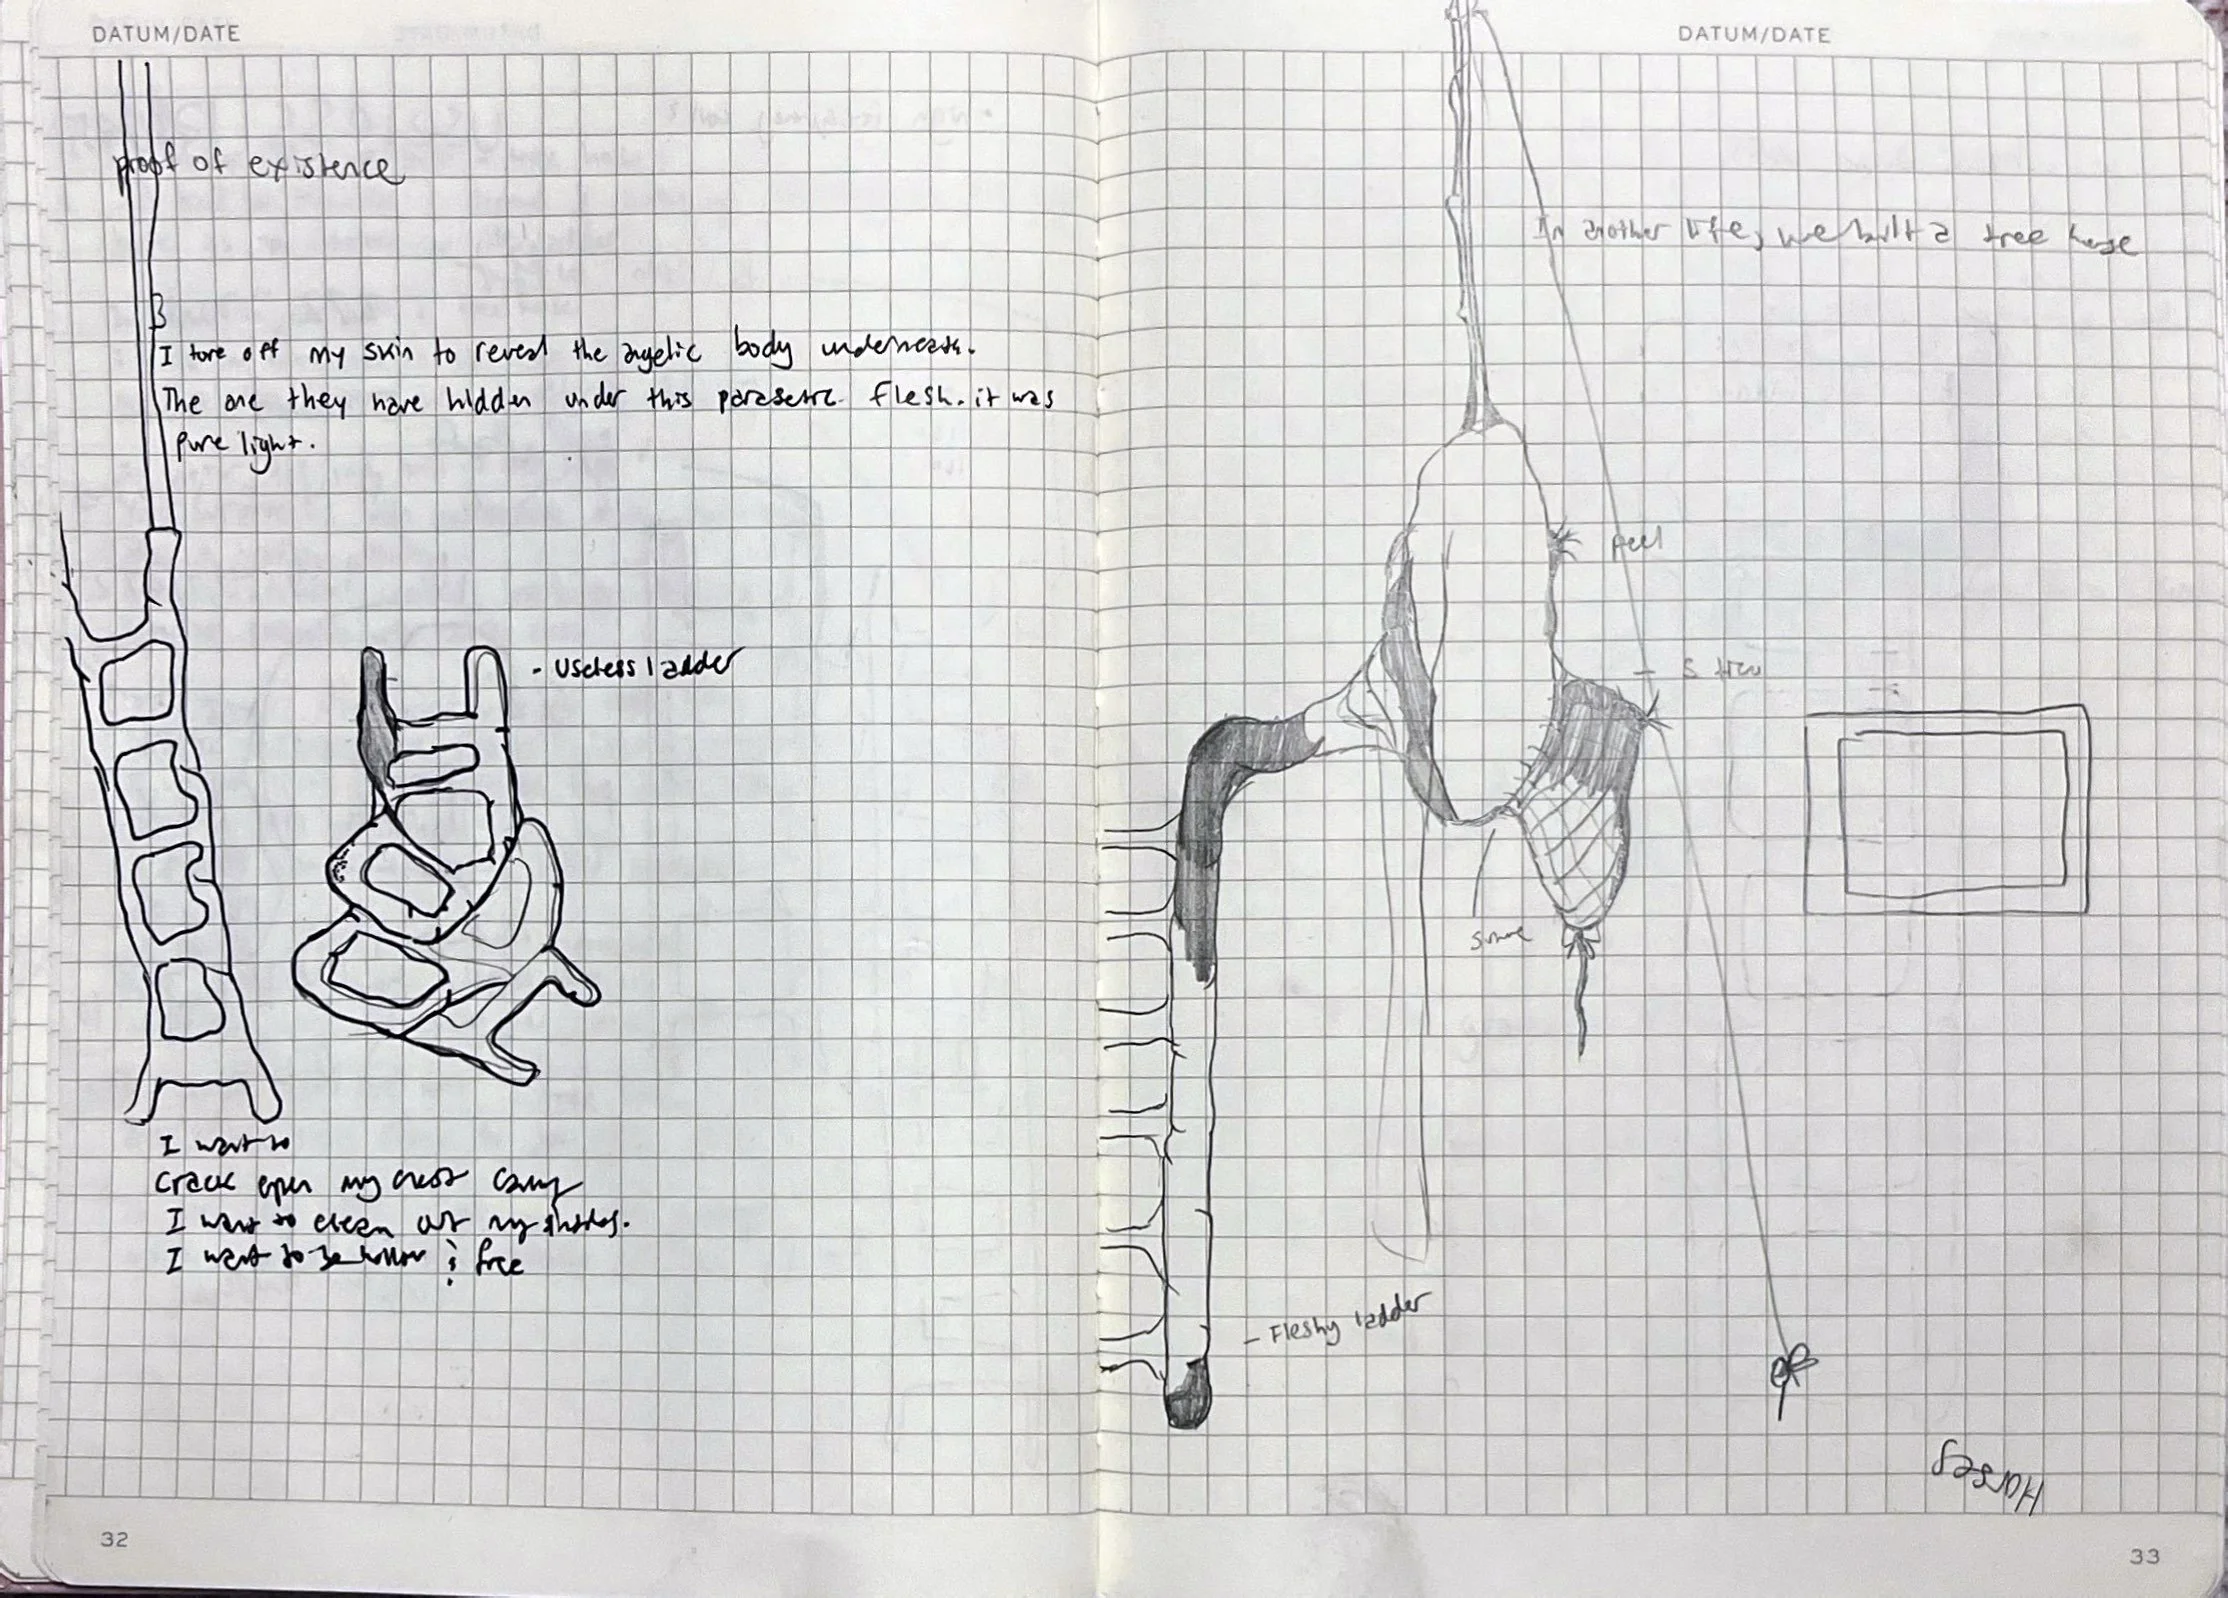 DATUM/DATE
proof of existence
I tore off my skin to reveal the angelic body underneath.
The one they have hidden under this parasetic flesh. it was
pure light.
- Useless ladder
I want to
crack open my chest cavity
I want to clean out my insides.
I want to be hollow & free
32
DATUM/DATE
In another life, we built a tree house
feel
- Fleshy ladder
Horses
33